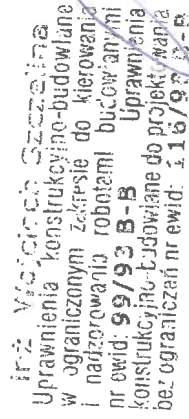 inż. Wojciech Szczelina
Uprawnienia konstrukcyjno-budowlane
w ograniczonym zakresie do kierowania
i nadzorowania robotami budowlanymi
nr ewid. 99/93 B-B Uprawnienia
konstrukcyjno-budowlane do projektowania
bez ograniczeń nr ewid. 116/93 B-B